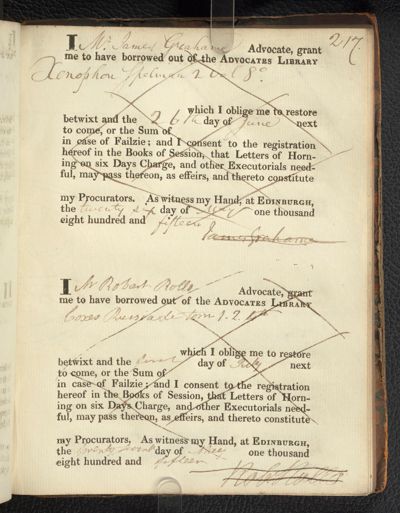 217.
I Mr James Grahame Advocate, grant
me to have borrowed out of the ADVOCATES LIBRARY
Xenophon Spelman 2 vol 8º
which I oblige me to restore
betwixt and the 26th day of June next
to come, or the Sum of
in case of Failzie; and I consent to the registration
hereof in the Books of Session, that Letters of Horn-
ing on six Days Charge, and other Executorials need-
ful, may pass thereon, as effeirs, and thereto constitute
my Procurators. As witness my Hand, at EDINBURGH,
the twenty six day of May one thousand
eight hundred and fifteen
James Grahame
I Mr Robert Rolle Advocate, grant
me to have borrowed out of the ADVOCATES LIBRARY
Coxes tom 1. 2
which I oblige me to restore
betwixt and the day of July next
to come, or the Sum of
in case of Failzie; and I consent to the registration
hereof in the Books of Session, that Letters of Horn-
ing on six Days Charge, and other Executorials need-
ful, may pass thereon, as effeirs, and thereto constitute
my Procurators. As witness my Hand, at EDINBURGH,
the day of one thousand
eight hundred and fifteen